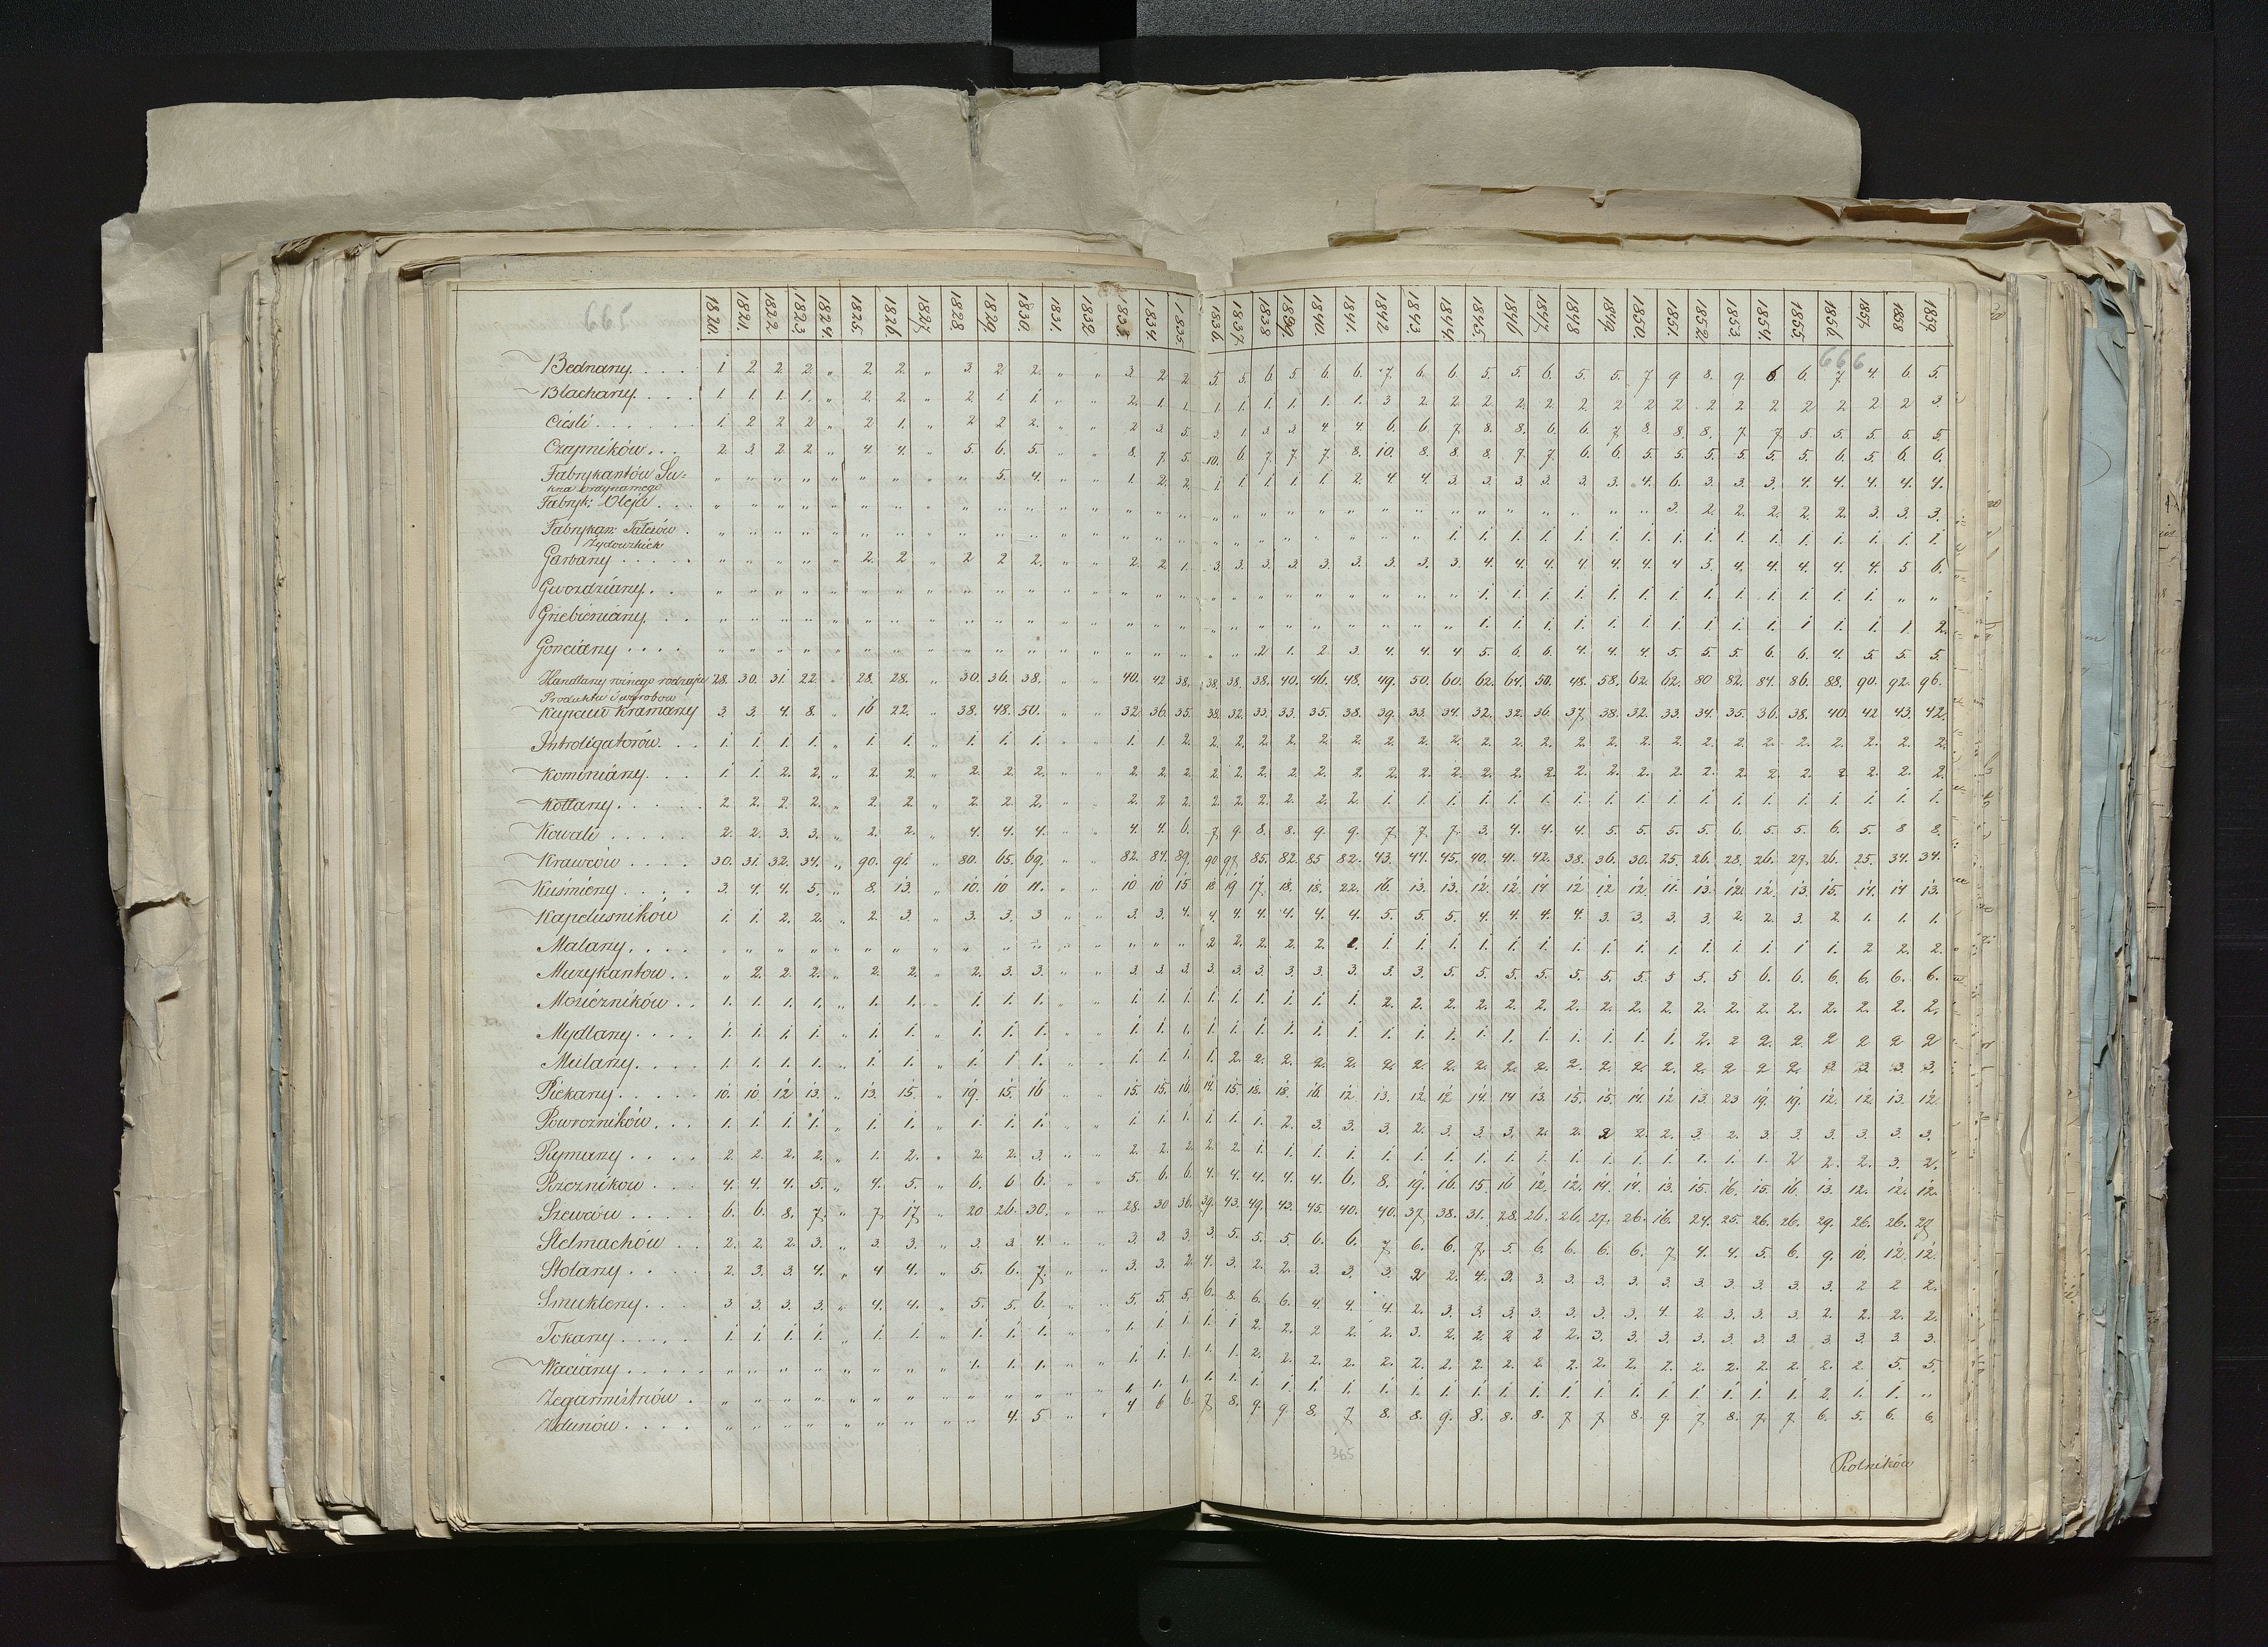 665
1820. 1821. 1822. 1823. 1824. 1825. 1826. 1827. 1828. 1829. 1830. 1831. 1832. 1833. 1834. 1835. 1836. 1837. 1838 1839. 1840. 1841. 1842 1843. 1844. 1845. 1846 1847. 1848 1849. 1850. 1851. 1852. 1853. 1854. 1855. 1856. 1857. 1858 1859.
666
Bednarzy. . . . 1 2. 2. 2. „ 2. 2. „ 3. 2. 2. „ „ 3. 2. 2. 5. 5. 6. 5. 6. 6. 7. 6. 6. 5. 5. 6. 5. 5. 7 9 8. 9. 6. 6. 7. 4. 6. 5.
Blacharzy. . . . 1. 1. 1. 1. „ 2. 2. „ 2. 1 1. „ „ 2. 1. 1. 1. 1. 1. 1. 1. 1. 3 2. 2. 2. 2. 2. 2. 2. 2 2 2. 2 2 2 2 2 2 3.
Cieśli . . . . . . 1. 2 2 2. „ 2 1. „ 2 2 2. „ „ 2 3. 5. 3. 1. 3. 3. 4. 4. 6. 6. 7. 8. 8. 6. 6. 7. 8. 8. 8. 7. 7. 5. 5. 5. 5. 5.
Czapników . . . 2. 3. 2. 2. „ 4. 4. „ 5. 6. 5. „ „ 8. 7. 5. 10. 6. 7. 7. 7. 8. 10. 8. 8. 8. 7. 7. 6. 6. 5. 5. 5. 5. 5. 5. 6. 5. 6. 6.
Fabrykantów Su- „ „ „ „ „ „ „ „ „ 5. 4. „ „ 1. 2. 2. 1. 1. 1. 1. 1. 2. 4. 4. 3. 3. 3. 3. 3. 3. 4. 6. 3. 3. 3. 4. 4. 4. 4. 4.
kna ordynarnego
Fabryk: Oleju . . „ „ „ „ „ „ „ „ „ „ „ „ „ „ „ „ „ „ „ „ „ „ „ „ „ „ „ „ „ „ „ 3. 2. 2. 2. 2. 2. 3. 3. 3.
Fabrykan: Tałesów . „ „ „ „ „ „ „ „ „ „ „ „ „ „ „ „ „ „ „ „ „ „ „ „ 1. 1. 1. 1. 1. 1. 1. 1. 1. 1. 1. 1. 1. 1. 1. 1
Żydowskich
Garbarzy . . . . . „ „ „ „ „ 2. 2 „ 2 2 2. „ „ 2. 2. 1. 3. 3. 3. 3. 3. 3. 3. 3. 3. 4. 4. 4. 4. 4. 4. 4 3. 4. 4. 4. 4. 4. 5 6.
Gwozdziarzy. . „ „ „ „ „ „ „ „ „ „ „ „ „ „ „ „ „ „ „ „ „ „ „ „ „ 1. 1. 1. 1. 1. 1. 1. 1. 1. 1. 1. 1. 1. „ „
Grzebieniarzy . . „ „ „ „ „ „ „ „ „ „ „ „ „ „ „ „ „ „ „ „ „ „ „ „ „ 1. 1. 1. 1. 1. 1. 1. 1. 1. 1. 1 1. 1. 1. 2.
Gonciarzy . . . . „ „ „ „ „ „ „ „ „ „ „ „ „ „ „ „ „ „ 2. 1. 2. 3. 4. 4. 4 5. 6. 6. 4. 4. 4. 5. 5. 5. 6. 6. 4. 5. 5. 5.
Handlarzy różnego rodzaju 28. 30. 31 22. „ 28. 28. „ 30. 36. 38. „ „ 40. 42 38. 38. 38. 38. 40. 46. 48. 49. 50. 60. 62. 64. 50. 48. 58. 62. 62. 80 82. 84. 86. 88. 90. 92. 96.
Produktu i wyrobow
Kupcuw Kramarzy 3. 3. 4. 8. „ 16 22. „ 38. 48. 50. „ „ 32. 36. 35. 38. 32. 33. 33. 35. 38. 39. 33. 34. 32. 32. 36. 37. 38. 32. 33. 34. 35. 36. 38. 40. 42 43. 42.
Introligatorów. . . 1. 1. 1. 1. „ 1. 1. „ 1. 1. 1. „ „ 1. 1. 2. 2. 2. 2. 2. 2. 2. 2. 2. 2. 2. 2. 2. 2. 2. 2. 2. 2. 2. 2. 2. 2. 2. 2. 2.
Kominiarzy. . . 1. 1. 2. 2. „ 2. 2. „ 2. 2. 2. „ „ 2. 2. 2. 2. 2. 2. 2. 2. 2. 2. 2. 2. 2. 2. 2. 2. 2. 2. 2. 2. 2. 2. 2. 2. 2. 2. 2.
Kotlarzy. . . . . 2. 2. 2. 2. „ 2. 2 „ 2. 2. 2. „ „ 2. 2. 2. 2. 2. 2. 2. 2. 2. 1. 1. 1. 1. 1. 1. 1. 1. 1. 1. 1. 1. 1. 1. 1. 1. 1. 1.
Kowali . . . . . 2. 2. 3. 3. „ 2. 2. „ 4. 4. 4. „ „ 4. 4. 6. 7. 9. 8. 8. 9. 9. 7 7 7. 3. 4. 4. 4. 5. 5. 5. 5. 6. 5. 5. 6. 5. 8 8.
Krawców . . . . 30. 31. 32. 34. „ 90. 91. „ 80. 65. 69. „ „ 82. 84. 89. 90 97. 85. 82. 85 82. 43. 44. 45. 40. 41. 42. 38. 36. 30. 25. 26. 28. 26. 27. 26. 25. 34. 34.
Kuśnierzy. . . . . 3. 4. 4. 5. „ 8. 13. „ 10. 10 11. „ „ 10 10 15 18 19 17. 18. 18. 22. 16. 13. 13. 12. 12. 14 12 12 12. 11. 13. 12. 12. 13. 15. 14. 14 13.
Kapelusników 1. 1. 2. 2. „ 2. 3 „ 3. 3. 3 „ „ 3. 3. 4. 4. 4. 4. 4. 4. 4. 5. 5. 5. 4. 4. 4. 4. 3. 3. 3. 3. 2. 2. 3. 2. 1. 1. 1.
Malarzy. . . . „ „ „ „ „ „ „ „ „ „ „ „ „ „ „ „ 2 2. 2. 2. 2. 1. 1. 1. 1. 1. 1. 1. 1. 1. 1. 1. 1. 1. 1. 1 1. 2 2. 2.
Muzykantow . . „ 2. 2. 2. „ 2. 2. „ 2. 3. 3. „ „ 3. 3. 3. 3. 3. 3. 3. 3. 3. 3. 3. 5. 5. 5. 5. 5. 5. 5. 5 5. 5 6. 6. 6. 6. 6. 6.
Mosiczników . . 1. 1. 1. 1. „ 1. 1. „ 1. 1. 1. „ „ 1. 1. 1. 1. 1. 1. 1. 1. 1. 2. 2. 2. 2. 2. 2. 2. 2. 2. 2. 2. 2. 2. 2. 2. 2. 2. 2.
Mydlarzy. . . . 1. 1. 1. 1. „ 1. 1. „ 1. 1. 1. „ „ 1. 1. 1. 1. 1. 1. 1. 1. 1. 1. 1. 1. 1. 1. 1. 1. 1. 1. 1. 2. 2 2. 2. 2 2 2 2
Mularzy. . . . 1. 1. 1. 1. „ 1. 1. „ 1. 1 1. „ „ 1. 1. 1. 1. 2. 2. 2. 2. 2. 2. 2. 2. 2. 2. 2. 2. 2. 2. 2. 2. 2 2 2. 2 3. 3. 3.
Piekarzy. . . . . 10. 10. 12 13. „ 13. 15. „ 19. 15. 16 „ „ 15. 15. 16. 14. 15. 18. 18. 16. 12 13. 12. 12 14. 14 13. 15. 15. 14. 12 13. 23 19. 19. 12. 12. 13. 12.
Powrozników. . . 1. 1. 1. 1. „ 1. 1. „ 1. 1. 1. „ „ 1. 1. 1. 1. 1. 1. 2. 3. 3. 3. 2. 3. 3. 3. 2. 2. 2 2. 2. 3. 2. 3. 3. 3. 3. 3. 3.
Rymarzy . . . . 2. 2. 2. 2. „ 1. 2. „ 2. 2. 3. „ „ 2. 2. 2. 2. 2. 1. 1. 1. 1. 1. 1. 1. 1. 1. 1. 1. 1. 1. 1. 1. 1. 1. 2 2. 2. 3. 2.
Rzeznikow . . . 4. 4. 4. 5. „ 4. 5. „ 6. 6 6. „ „ 5. 6. 6. 4. 4. 4. 4. 4. 6. 8. 19. 16. 15. 16 12. 12. 14. 14. 13. 15. 16. 15. 16. 13. 12. 12. 12.
Szewców . . . . 6. 6. 8. 7. „ 7. 17 „ 20 26. 30. „ „ 28. 30 36. 39. 43. 49. 43. 45. 40. 40. 37. 38. 31. 28. 26. 26. 27. 26. 16. 24. 25. 26. 26. 29. 26. 26. 27
Stelmachów . . 2. 2. 2. 3. „ 3. 3. „ 3. 3. 4. „ „ 3. 3. 3. 3. 5. 5. 5. 6. 6. 7 6. 6. 7. 5. 6. 6. 6. 6. 7 4. 4. 5. 6. 9. 10. 12. 12.
Stolarzy . . . . 2. 3. 3. 4. „ 4 4. „ 5. 6. 7. „ „ 3. 3. 2. 4. 3. 2. 2. 3. 3. 3. 2 2. 4. 3. 3. 3. 3. 3. 3. 3. 3. 3. 3. 3. 2 2 2.
Smuklerzy. . . . 3 3. 3. 3. „ 4. 4. „ 5. 5. 6. „ „ 5. 5. 5. 6. 8. 6. 6. 4. 4. 4. 2. 3. 3. 3. 3. 3. 3. 3. 4. 2. 3. 3. 3. 2. 2. 2. 2.
Tokarzy . . . . . 1. 1. 1. 1. „ 1. 1. „ 1. 1. 1. „ „ 1. 1. 1. 1. 1 2. 2. 2 2. 2. 3. 2. 2. 2 2 2. 3. 3. 3. 3. 3. 3. 3. 3. 3. 3. 3.
Waciarzy . . . . . „ „ „ „ „ „ „ „ 1. 1. 1. „ „ 1. 1. 1. 1. 1. 2. 2. 2. 2. 2. 2. 2. 2. 2. 2. 2. 2. 2. 2. 2. 2. 2. 2. 2. 2. 5. 5.
Zegarmistrzów . „ „ „ „ „ „ „ „ „ „ „ „ „ 1. 1. 1. 1. 1. 1. 1. 1. 1. 1. 1. 1. 1. 1. 1. 1. 1. 1. 1. 1. 1. 1. 1. 2. 1. 1. „
Zdunów . . . . „ „ „ „ „ „ „ „ „ 4. 5 „ „ 4 6 6. 7. 8. 9. 9. 8. 7 8. 8. 9. 8. 8. 8. 7 7. 8. 9. 7. 8. 7. 7. 6. 5. 6. 6.
365
Rolników